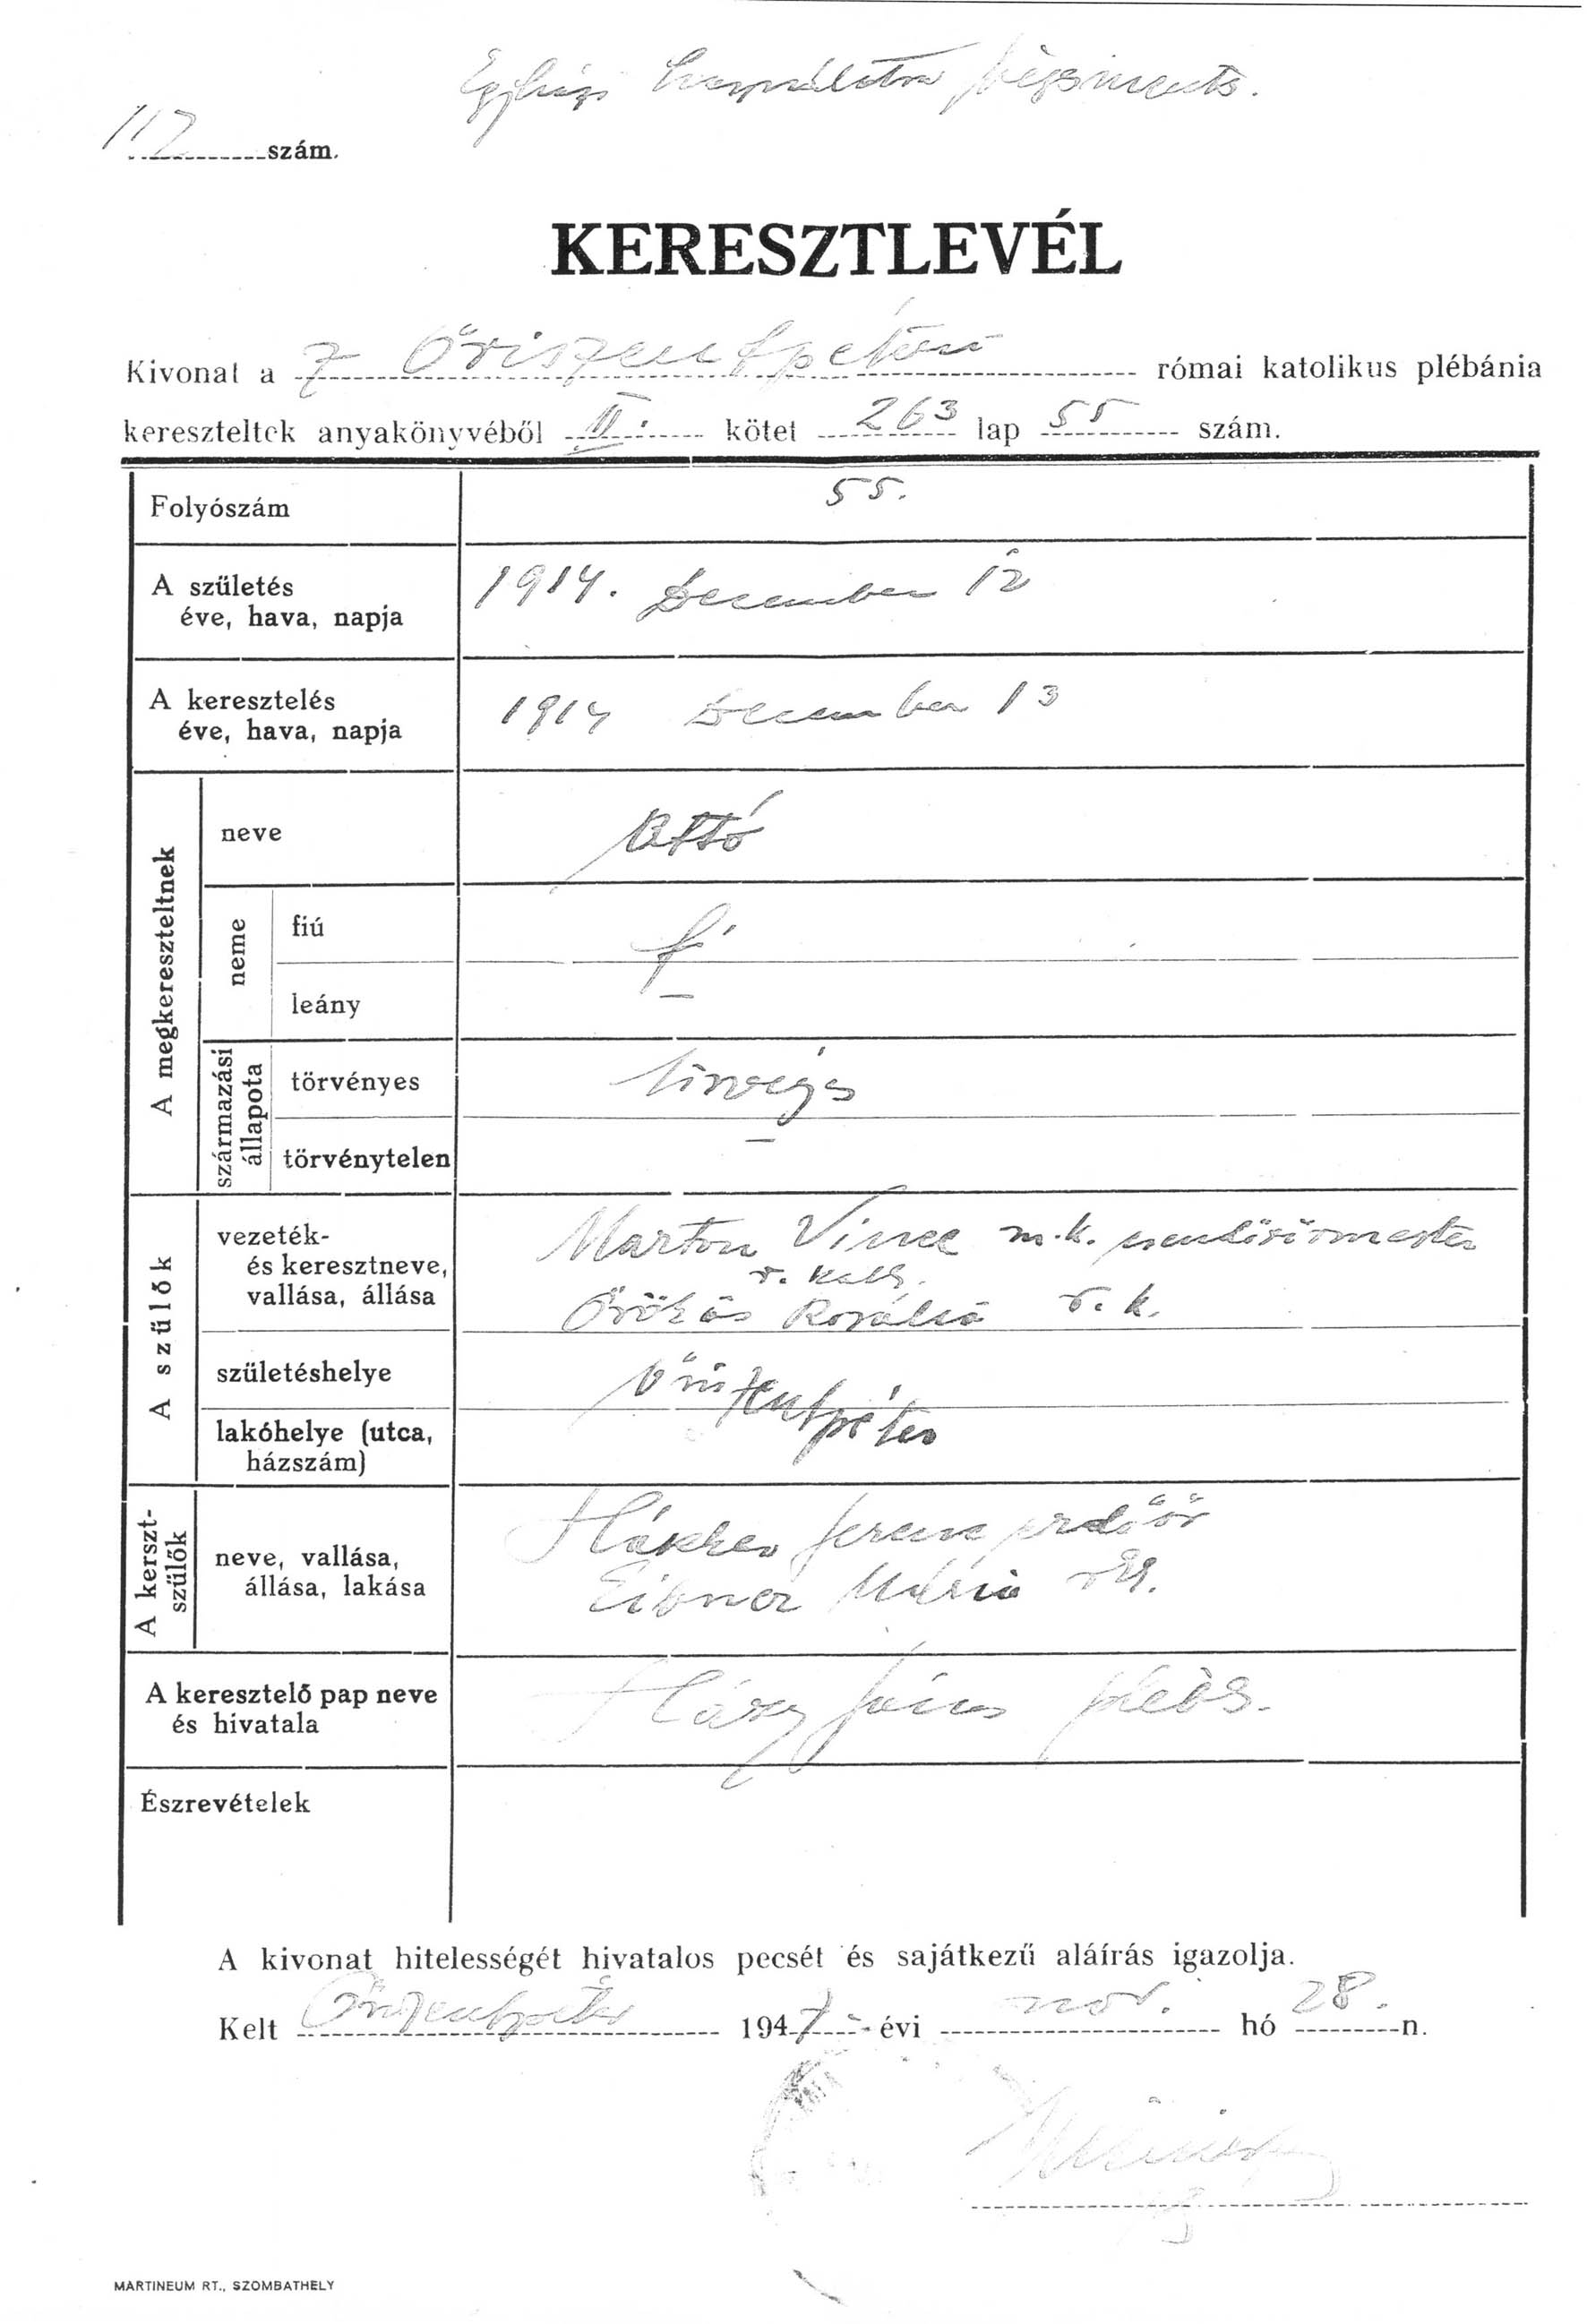 Egyházi használatra bélyegmentes.
117 szám.
KERESZTLEVÉL
Kivonat a z Őriszentpéteri római katolikus plébánia
kereszteltek anyakönyvéből II. kötet 263 lap 55 szám.
Folyószám 55.
A születés
éve, hava, napja 1914. December 12
A keresztelés
éve, hava, napja 1914 December 13
A megkereszteltnek
neve Ottó
neme
fiú f
leány –
származási állapota
törvényes törvényes
törvénytelen –
A szülők
vezeték-
és keresztneve,
vallása, állása
Marton Vince m. k. csendőrőrmester
r. kath.
Örökös Rozália r. k.
születéshelye
Őriszentpéter
lakóhelye (utca,
házszám)
A kerszt-
szülők
neve, vallása,
állása, lakása
Ferenc erdőőr
Eibner Mária
A keresztelő pap neve
és hivatala
János pléb.
Észrevételek
A kivonat hitelességét hivatalos pecsét és sajátkezű aláírás igazolja.
Kelt Őriszentpéter 1947 évi nov. hó 28. n.
MARTINEUM RT., SZOMBATHELY